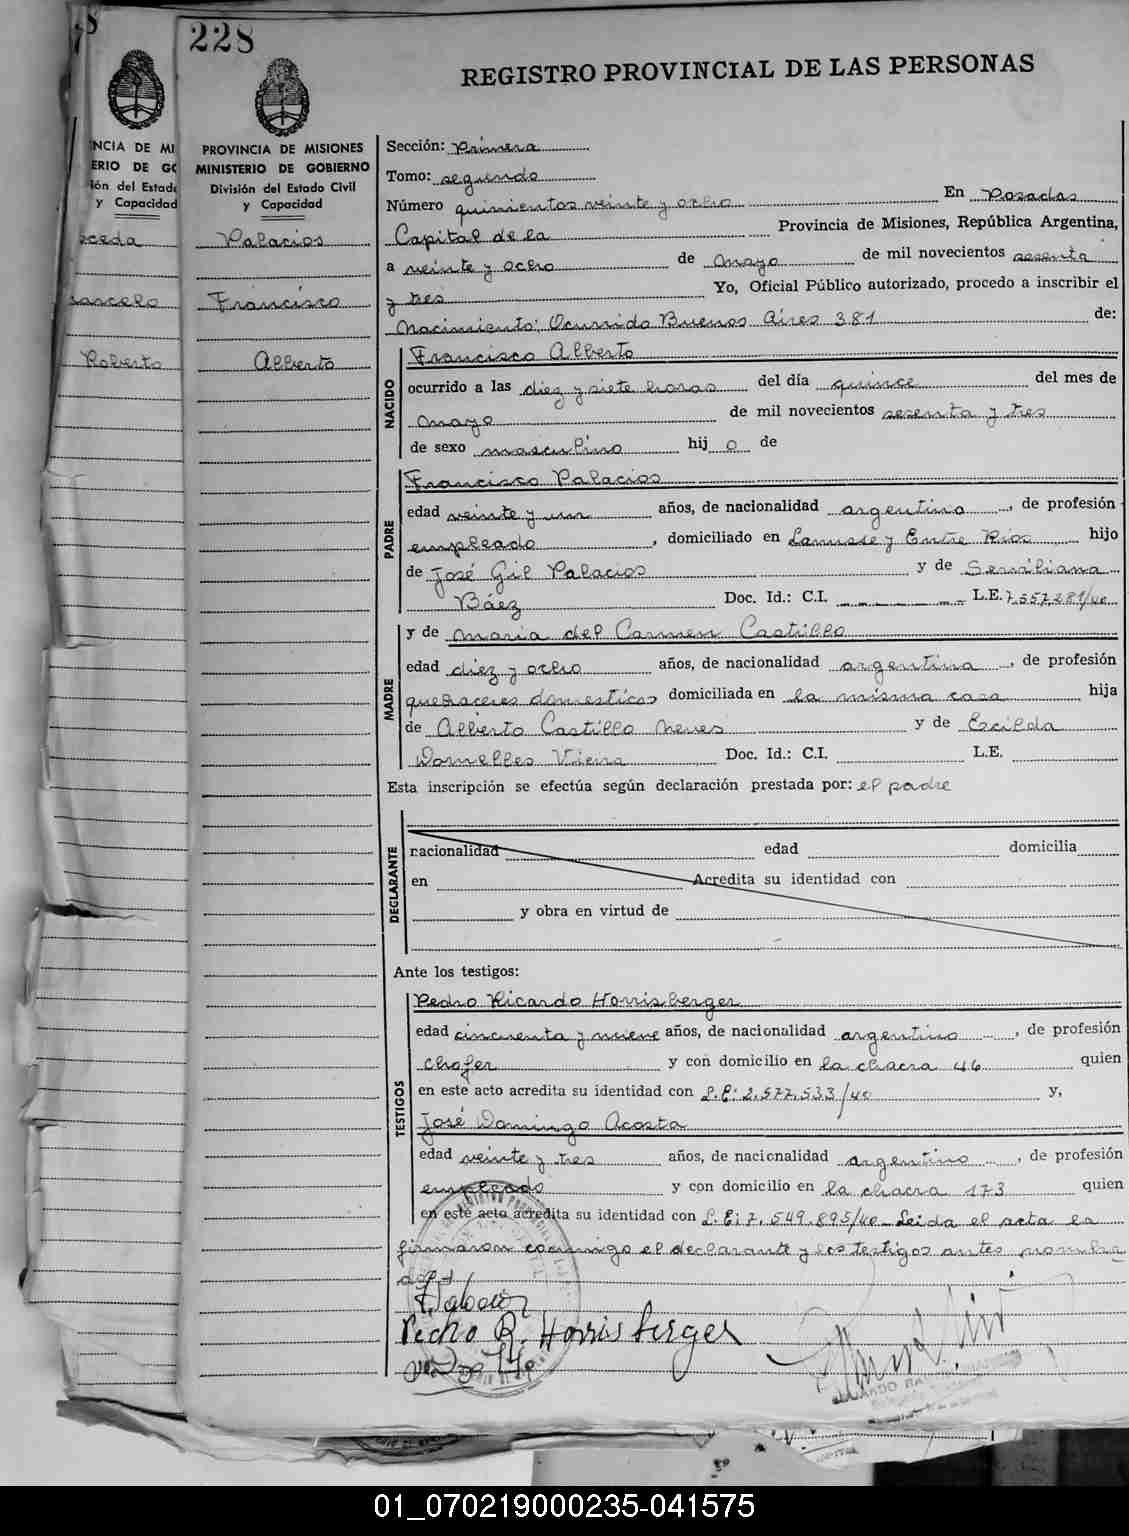 228
REGISTRO PROVINCIAL DE LAS PERSONAS
PROVINCIA DE MISIONES
MINISTERIO DE GOBIERNO
División del Estado Civil
y Capacidad
Palacios
Francisco
Alberto
NCIA DE MI
ERIO DE GO
ión del Estado
y Capacidad
Roberto
Sección: Primera
Tomo: segundo
Número quinientos veinte y ocho En Posadas
Capital de la Provincia de Misiones, República Argentina,
a veinte y ocho de mayo de mil novecientos sesenta
y tres Yo, Oficial Público autorizado, procedo a inscribir el
Nacimiento: Ocurrido Buenos Aires 381 de:
NACIDO
Francisco Alberto
ocurrido a las diez y siete horas del día quince del mes de
mayo de mil novecientos sesenta y tres
de sexo masculino hij o de
PADRE
Francisco Palacios
edad veinte y un años, de nacionalidad argentino, de profesión
empleado, domiciliado en Lanusse y Entre Rios hijo
de José Gil Palacios y de Serviliana
Báez Doc. Id.: C.I. L.E. 7.557.281/40
MADRE
y de Maria del Carmen Castillo
edad diez y ocho años, de nacionalidad argentina, de profesión
quehaceres domesticos domiciliada en la misma casa hija
de Alberto Castillo Neves y de Ecilda
Dornelles Viera Doc. Id.: C.I. L.E.
Esta inscripción se efectúa según declaración prestada por: el padre
DECLARANTE
nacionalidad edad domicilia
en Acredita su identidad con
y obra en virtud de
Ante los testigos:
TESTIGOS
Pedro Ricardo Horrisberger
edad cincuenta y nueve años, de nacionalidad argentino, de profesión
chofer y con domicilio en la chacra 46 quien
en este acto acredita su identidad con L.E: 2.577.533/40 y,
José Domingo Acosta
edad veinte y tres años, de nacionalidad argentino, de profesión
empleado y con domicilio en la chacra 173 quien
en este acto acredita su identidad con L.E: 7.549.895/40_ Leida el acta la
firmaron conmigo el declarante y los testigos antes nombra
dos
Pedro R. Horrisberger
01_070219000235-041575